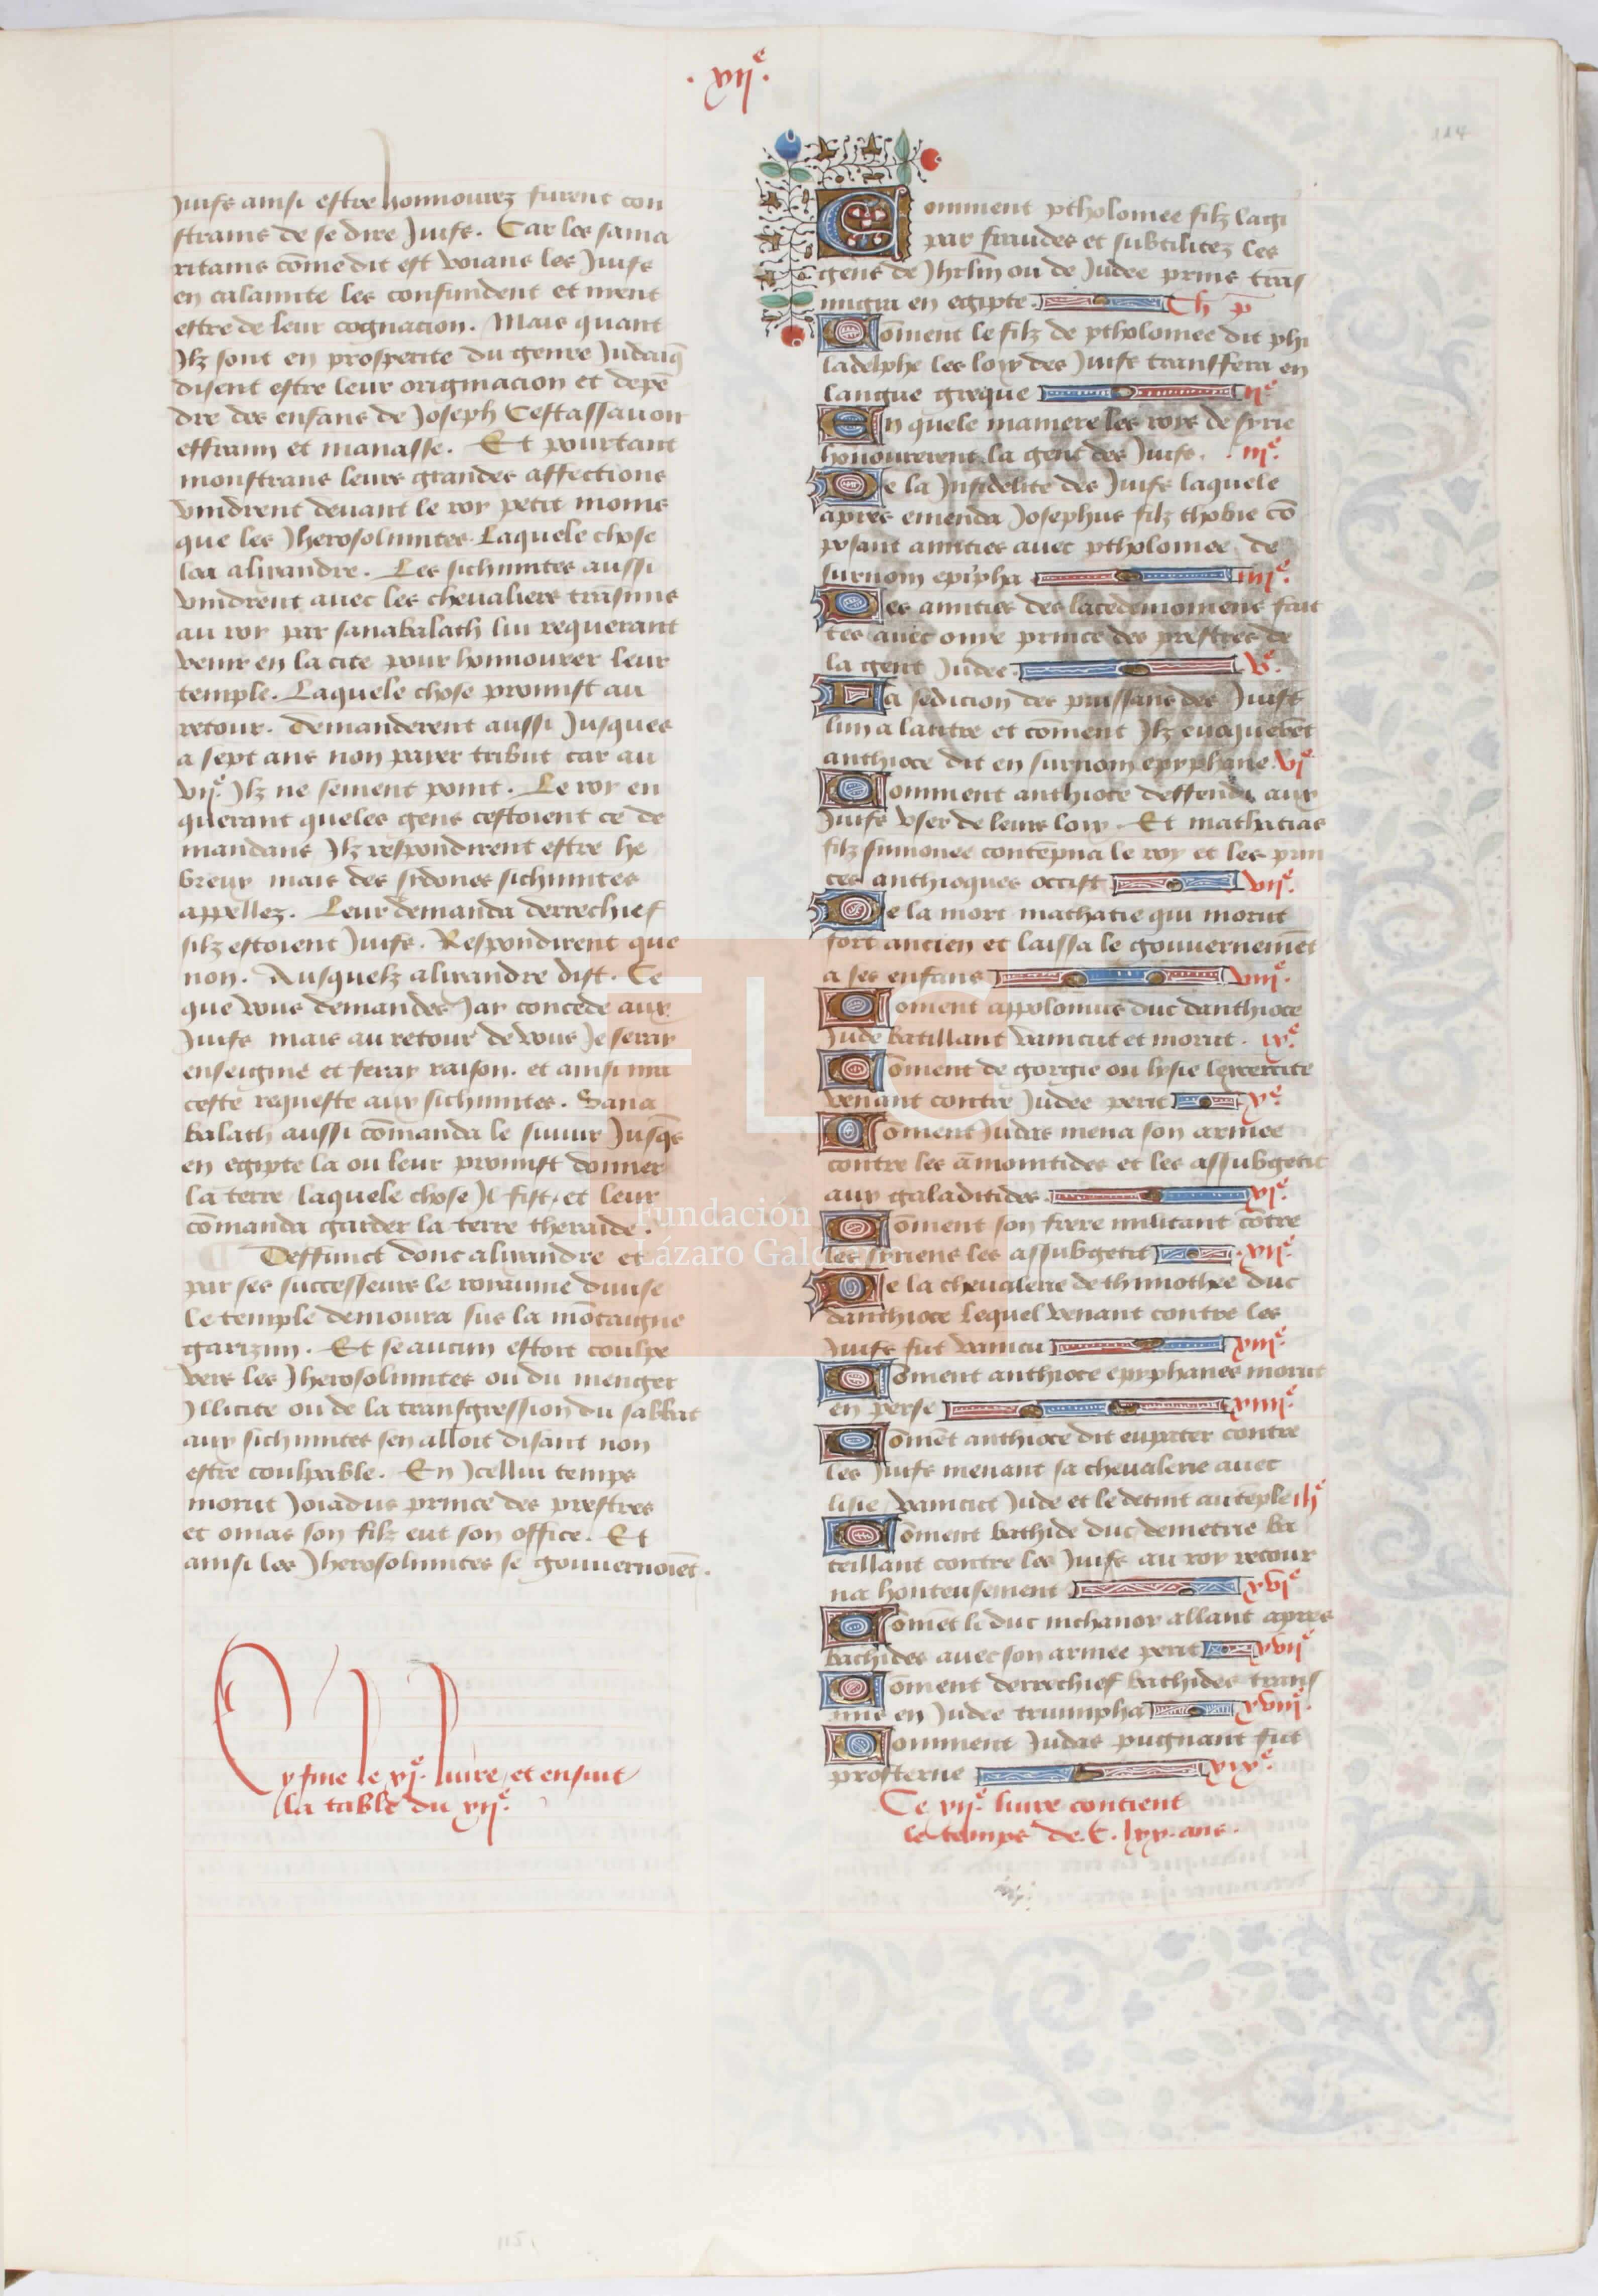 .xij.e
114
Juifs ainsi estre honnourez furent con
strains de se dire Juifs. Car les sama
ritains cõme dit est voians les Juifs
en calamite les confundent et nient
estre de leur cognacion. Mais quant
Ilz sont en prosperite du genre Judaiq̃
disent estre leur originacion et depẽ
dre des enfans de Joseph Cestassauoir
effraim et manasse. Et pourtant
monstrans leurs grandes affections
vindrent deuant le roy petit moins
que les Jherosolimites. Laquele chose
loa alixandre. Les sichimites aussi
vindrent auec les cheualiers trãsmis
au roy par sanabalath lui requerant
venir en la cite pour honnourer leur
temple. Laquele chose promist au
retour. Demanderent aussi Jusques
a sept ans non paier tribut car au
vije. Ilz ne sement point. Le roy en
querant queles gens cestoient ce de
mandans Ilz respondirent estre he
breux mais des sidones sichimites
appellez. Leur demanda derrechief
silz estoient Juifs. Respondirent que
non. Ausquelz alixandre dist. Ce
que vous demandes Jay concede aux
Juifs mais au retour de vous Je seray
enseignie et feray raison. et ainsi mit
ceste requeste aux sichimites. Sana
balath aussi cõmanda le suiuir Jusq̃s
en egipte la ou leur promist donner
la terre laquele chose Il fist, et leur
cõmanda garder la terre theraide.
Deffunct donc alixandre et
par ses successeurs le royaume diuise
le temple demoura sus la mõtaigne
garizim. Et se aucun estoit coulpe
vers les Jherosolimites ou du menger
Illicite ou de la transgression du sabbat
aux sichimites sen alloit disant non
estre coulpable. En Icellui temps
morut Joiadus prince des prestres
et omas son filz eut son office. Et
ainsi les Jherosolimites se gouuernoiẽt.
Cy fine le xje. liure, et ensuit
la table du xije.
Comment ptholomee filz lagi
par fraudes et subtilitez les
gens de Jhrl̃m ou de Judee prins trãs
migra en egipte. Ch p
Cõment le filz de ptholomee dit phi
ladelphe les loix des Juifs transfera en
langue greque ije
En quele maniere les roys de syrie
honourerent la gent des Juifs. iije.
De la Infidelite des Juifs laquele
apres emenda Josephus filz thobie cõ
posant amities auec ptholomee de
surnom epipha iiije.
Des amities des lacedemoniens fait
tes auec onye prince des prestres de
la gent Judee. ve.
La sedicion des puissans des Juifs
lun a lautre et cõment Ilz euoquerẽt
anthioce dit en surnom epyphane. vje
Comment anthioce deffendi aux
Juifs vser de leurs loix. Et mathatias
filz simonee contẽpna le roy et les prin
ces anthioques occist vije.
De la mort mathatie qui morut
fort ancien et laissa le gouuernemẽt
a ses enfans viije.
Coment appolonius duc danthioce
Jude batillant vaincut et morut. ixe.
Cõment de gorgie ou lysie lexercite
venant contre Judee perit xe.
Cõment Judas mena son armee
contre les ãmonitides et les assubgetit
aux galaditides. xje.
Cõment son frere militant cõtre
les syriens les assubgetit xije.
De la cheualerie de thimothee duc
danthioce lequel venant contre les
Juifs fut vaincu xiije.
Cõment anthioce epyphanes morut
en perse xiiije.
Cõmẽt anthioce dit eupater contre
les Juifs menant sa cheualerie auec
lisie, vaincut Jude et le detint au tẽple
Cõment bathide duc demetrie ba
teillant contre les Juifs au roy retour
na honteusement xvje
Cõmẽt le duc nichanor allant apres
bachides auec son armee perit xvije
Cõment derrechief bathides trans
mis en Judee triumpha xviije.
Comment Judas pugnant fut
prosterne xixe.
Ce xije. liure contient
le temps de. C. lxx. ans.
Fundación
Lázaro Galdiano